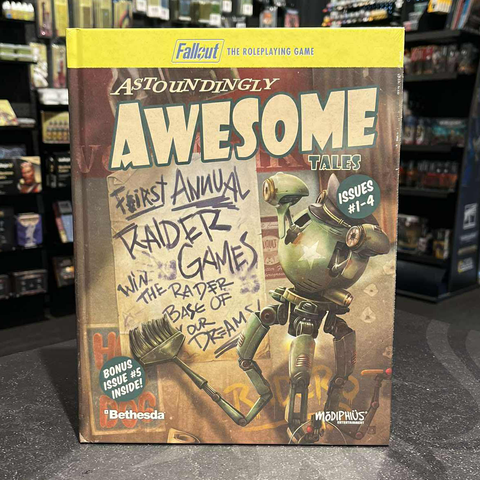 Fallout THE ROLEPLAYING GAME
ASTOUNDINGLY
AWESOME
TALES
ISSUES
#1-4
FIIRST ANNUAL
RAIDER
GAMES
WIN
THE RAIDER
BASE OF
YOUR
DREAMS!
BONUS
ISSUE #5
INSIDE!
Bethesda
MÖDIPHIÜS
ENTERTAINMENT